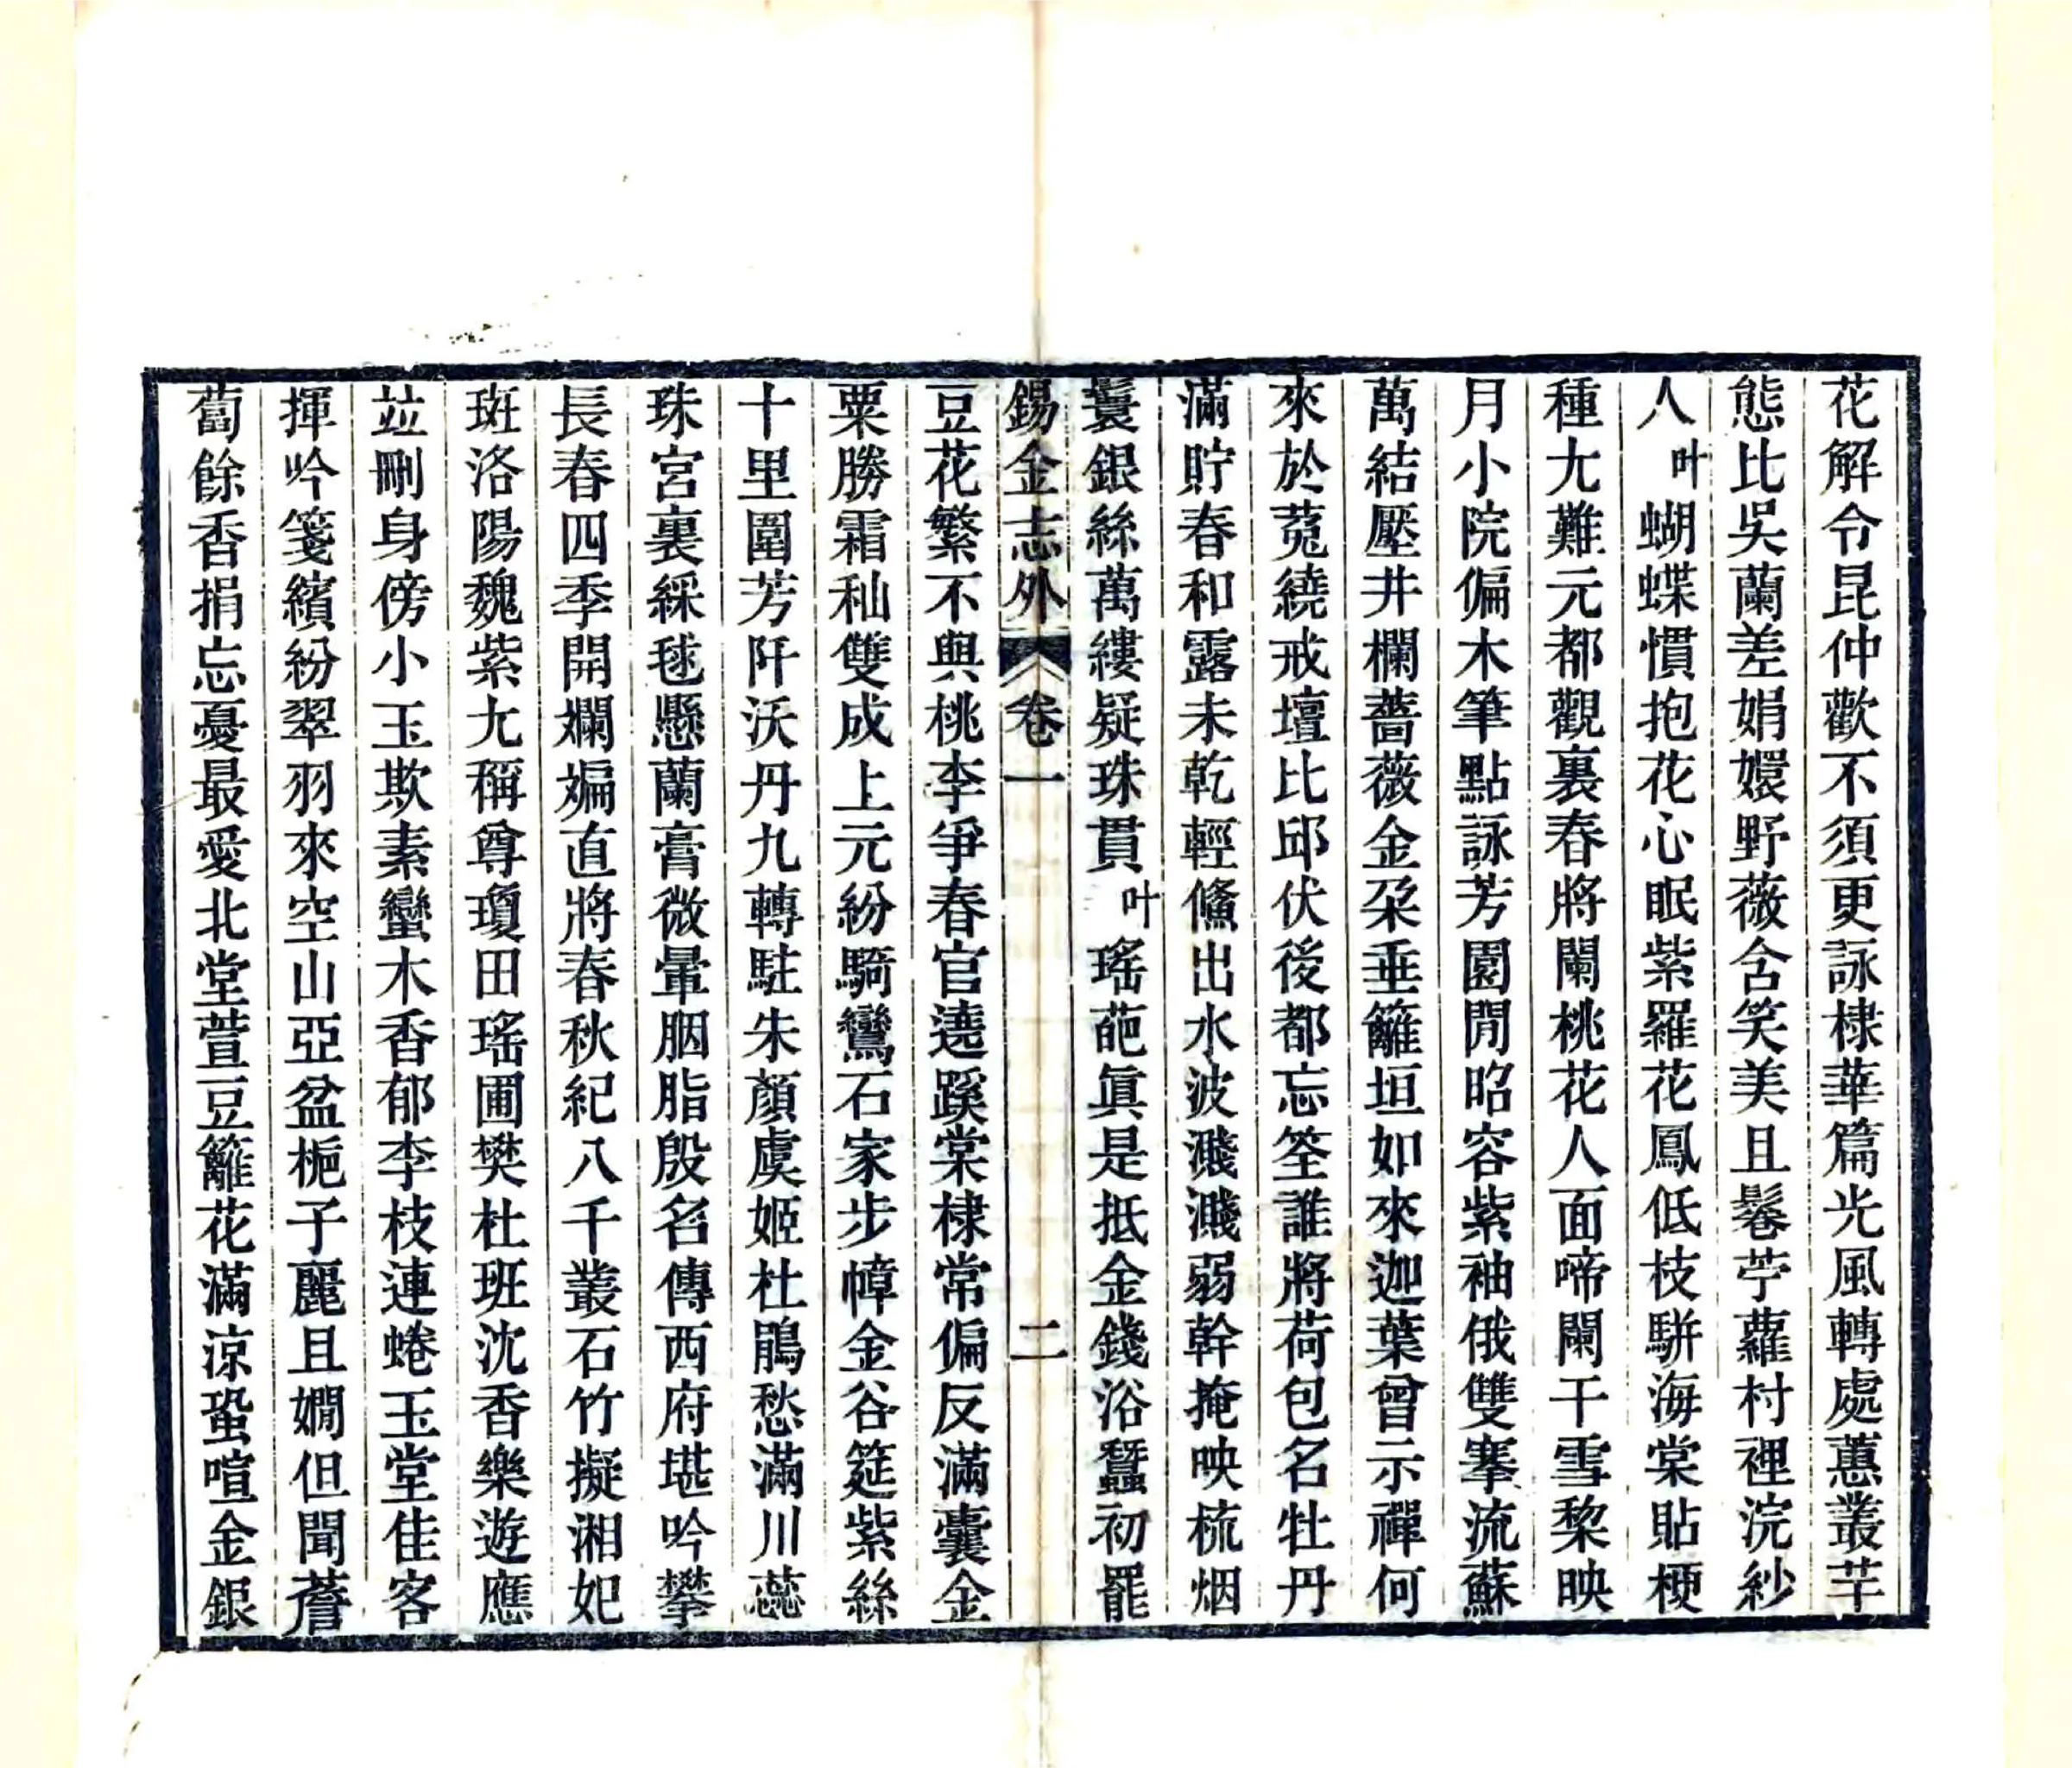 花解令昆仲歡不須更詠棣華篇光風轉處蕙叢芊
態比吳蘭差娟嬛野薇含笑美且鬈苧蘿村裡浣紗
人叶蝴蝶慣抱花心眠紫羅花鳳低枝駢海棠貼梗
種尢難元都觀裏春將闌桃花人面啼闌干雪棃映
月小院偏木筆點詠芳園閒昭容紫袖俄雙搴流蘇
萬結壓井欄薔薇金朶垂籬垣如來迦葉曾示禪何
來於菟繞戒壇比邱伏後都忘筌誰將荷包名牡丹
滿貯春和露未乾輕鯈出水波濺濺弱幹掩映梳烟
鬟銀絲萬縷疑珠貫叶瑤葩眞是抵金錢浴蠶初罷
錫金志外 卷一 二
豆花繁不與桃李爭春官遶蹊棠棣常偏反滿囊金
粟勝霜秈雙成上元紛騎鸞石家步幛金谷筵紫絲
十里圍芳阡沃丹九轉駐朱顏虞姬杜鵑愁滿川蕊
珠宮裏綵毬懸蘭膏微暈胭脂殷名傳西府堪吟攀
長春四季開斕斒直將春秋紀八千叢石竹擬湘妃
斑洛陽魏紫尢稱尊瓊田瑤圃樊杜班沈香樂遊應
竝刪身傍小玉欺素蠻木香郁李枝連蜷玉堂佳客
揮吟箋繽紛翠羽來空山亞盆梔子麗且嫺但聞薝
蔔餘香捐忘憂最愛北堂萱豆籬花滿涼蛩喧金銀